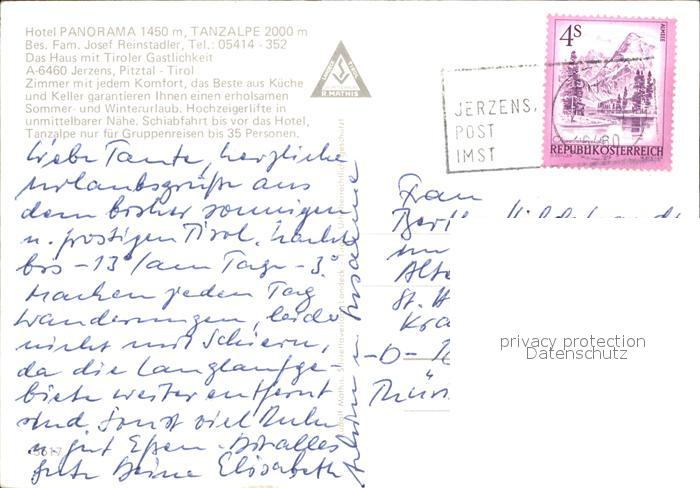 Hotel PANORAMA 1450 m, TANZALPE 2000 m
Bes. Fam. Josef Reinstadler, Tel.: 05414 - 352
Das Haus mit Tiroler Gastlichkeit
A-6460 Jerzens, Pitztal - Tirol
Zimmer mit jedem Komfort, das Beste aus Küche
und Keller garantieren Ihnen einen erholsamen
Sommer- und Winterurlaub. Hochzeigerlifte in
unmittelbarer Nähe. Schiabfahrt bis vor das Hotel,
Tanzalpe nur für Gruppenreisen bis 35 Personen.
R. MATHIS
JERZENS,
POST
IMST
4s
ALMSEE
REPUBLIK ÖSTERREICH
Liebe Tante, herzliche
Urlaubsgrüße aus
dem bisher sonnigen
u. frostigen Tirol. Nachts
bis -13° am Tage -3°
Machen jeden Tag
Wanderungen, leider
nicht mit Schiern,
da die Langlaufge-
biete weiter entfernt
sind. Sonst viel Ruhe
u. gut Essen. Dir alles
Gute Deine Elisabeth
Frau
St. H
-D-
privacy protection
Datenschutz